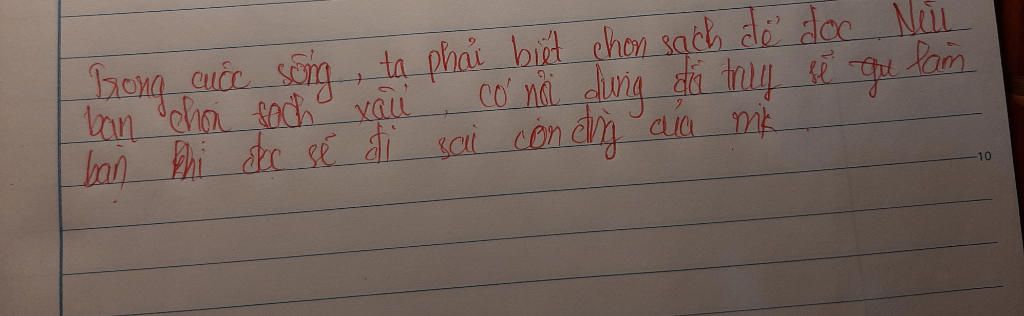 Trong cuộc sống, ta phải biết chọn sách để đọc. Nếu
bạn chọn sách xấu, có nội dung đồi trụy sẽ làm
bạn khi đọc sẽ đi sai con đường của mk.
10